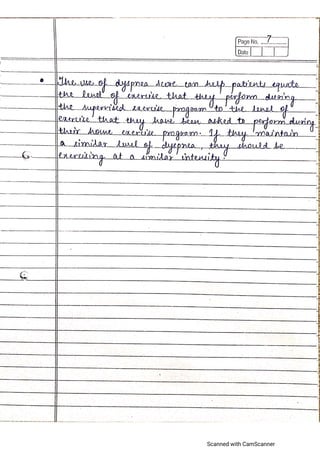 Page No. 7
Date
• The use of dyspnea score can help patients equate
the level of exercise that they perform during
the supervised exercise program to the level of
exercise that they have been asked to perform during
their home exercise program. If they maintain
a similar level of dyspnea, they should be
exercising at a similar intensity.
Scanned with CamScanner